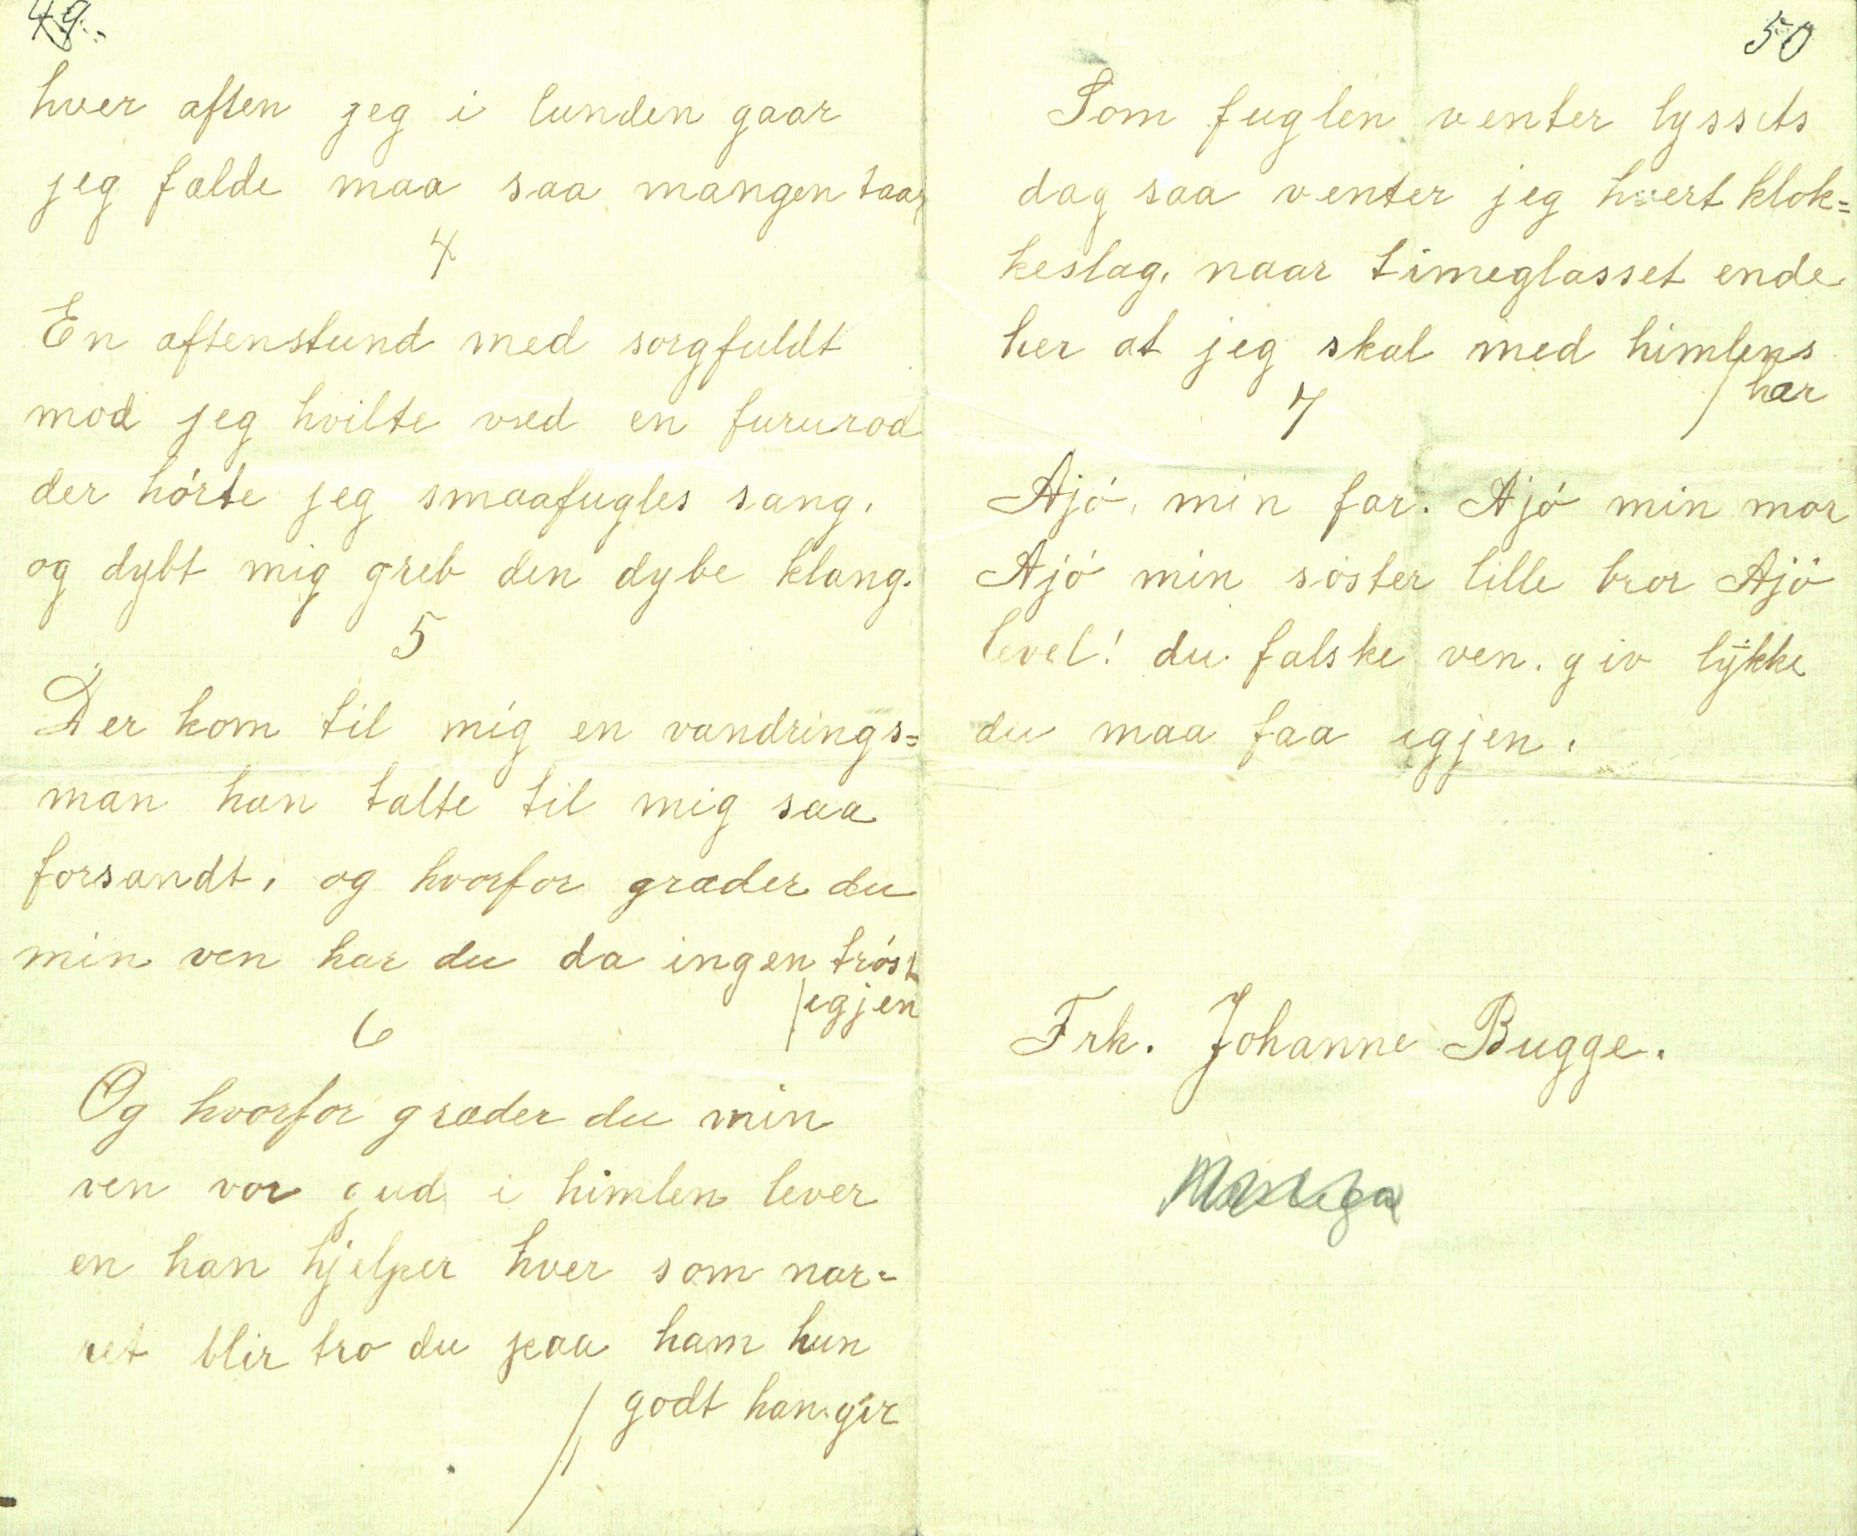 49.
hver aften jeg i lunden gaar
jeg fælde maa saa mangen taar
4
En aftenstund med sorgfuldt
mod jeg hvilte ved en fururod
der hórte jeg smaafugles sang.
og dybt mig greb den dybe klang.
5
Der kom til mig en vandrings=
man han talte til mig saa
forsandt, og hvorfor græder du
min ven har du da ingen tróst
igjen
6
Og hvorfor græder du min
ven vor gud i himlen lever
en han hjelper hver som nar=
ret blir tro du paa ham kun
godt han gir
50
Som fuglen venter lyssets
dag saa venter jeg hvert klok=
keslag, naar timeglasset ende
her at jeg skal med himlens
hær
7
Ajó, min far. Ajó min mor
Ajó min sóster lille bror Ajó
level! du falske ven. giv lykke
du maa faa igjen.
Frk. Johanne Bugge.